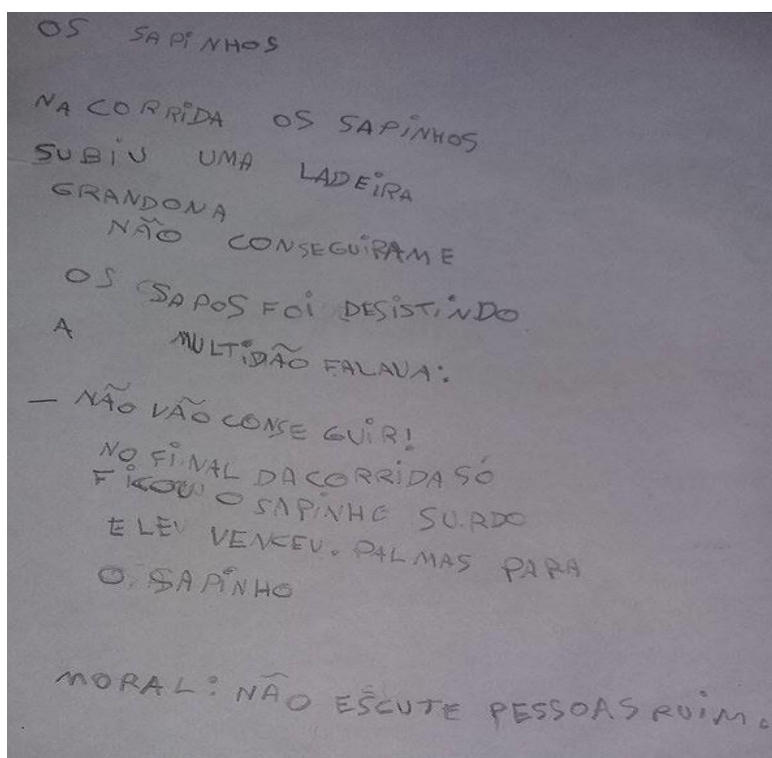 OS SAPINHOS
NA CORRIDA OS SAPINHOS
SUBIU UMA LADEIRA
GRANDONA
NÃO CONSEGUIRAM E
OS SAPOS FOI DESISTINDO
A MULTIDÃO FALAVA:
— NÃO VÃO CONSEGUIR!
NO FINAL DA CORRIDA SÓ
FICOU O SAPINHO SURDO
ELEU VENCEU. PALMAS PARA
O SAPINHO
MORAL: NÃO ESCUTE PESSOAS RUIM.